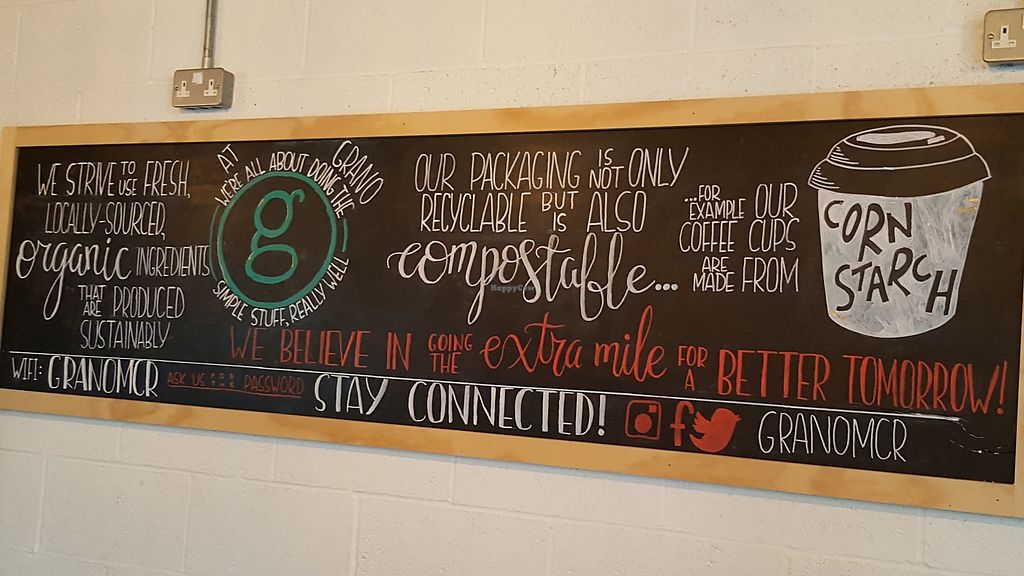 WE STRIVE TO USE FRESH,
LOCALLY-SOURCED,
organic INGREDIENTS
THAT ARE PRODUCED
SUSTAINABLY
AT GRANO
WE'RE ALL ABOUT DOING THE
g
SIMPLE STUFF, REALLY WELL
OUR PACKAGING IS NOT ONLY
RECYCLABLE BUT IS ALSO
compostable...
...FOR EXAMPLE OUR
COFFEE CUPS
ARE MADE FROM
CORN
STARCH
HappyCow
WE BELIEVE IN GOING THE extra mile FOR A BETTER TOMORROW!
WIFI: GRANOMCR ASK US FOR THE PASSWORD STAY CONNECTED! f GRANOMCR